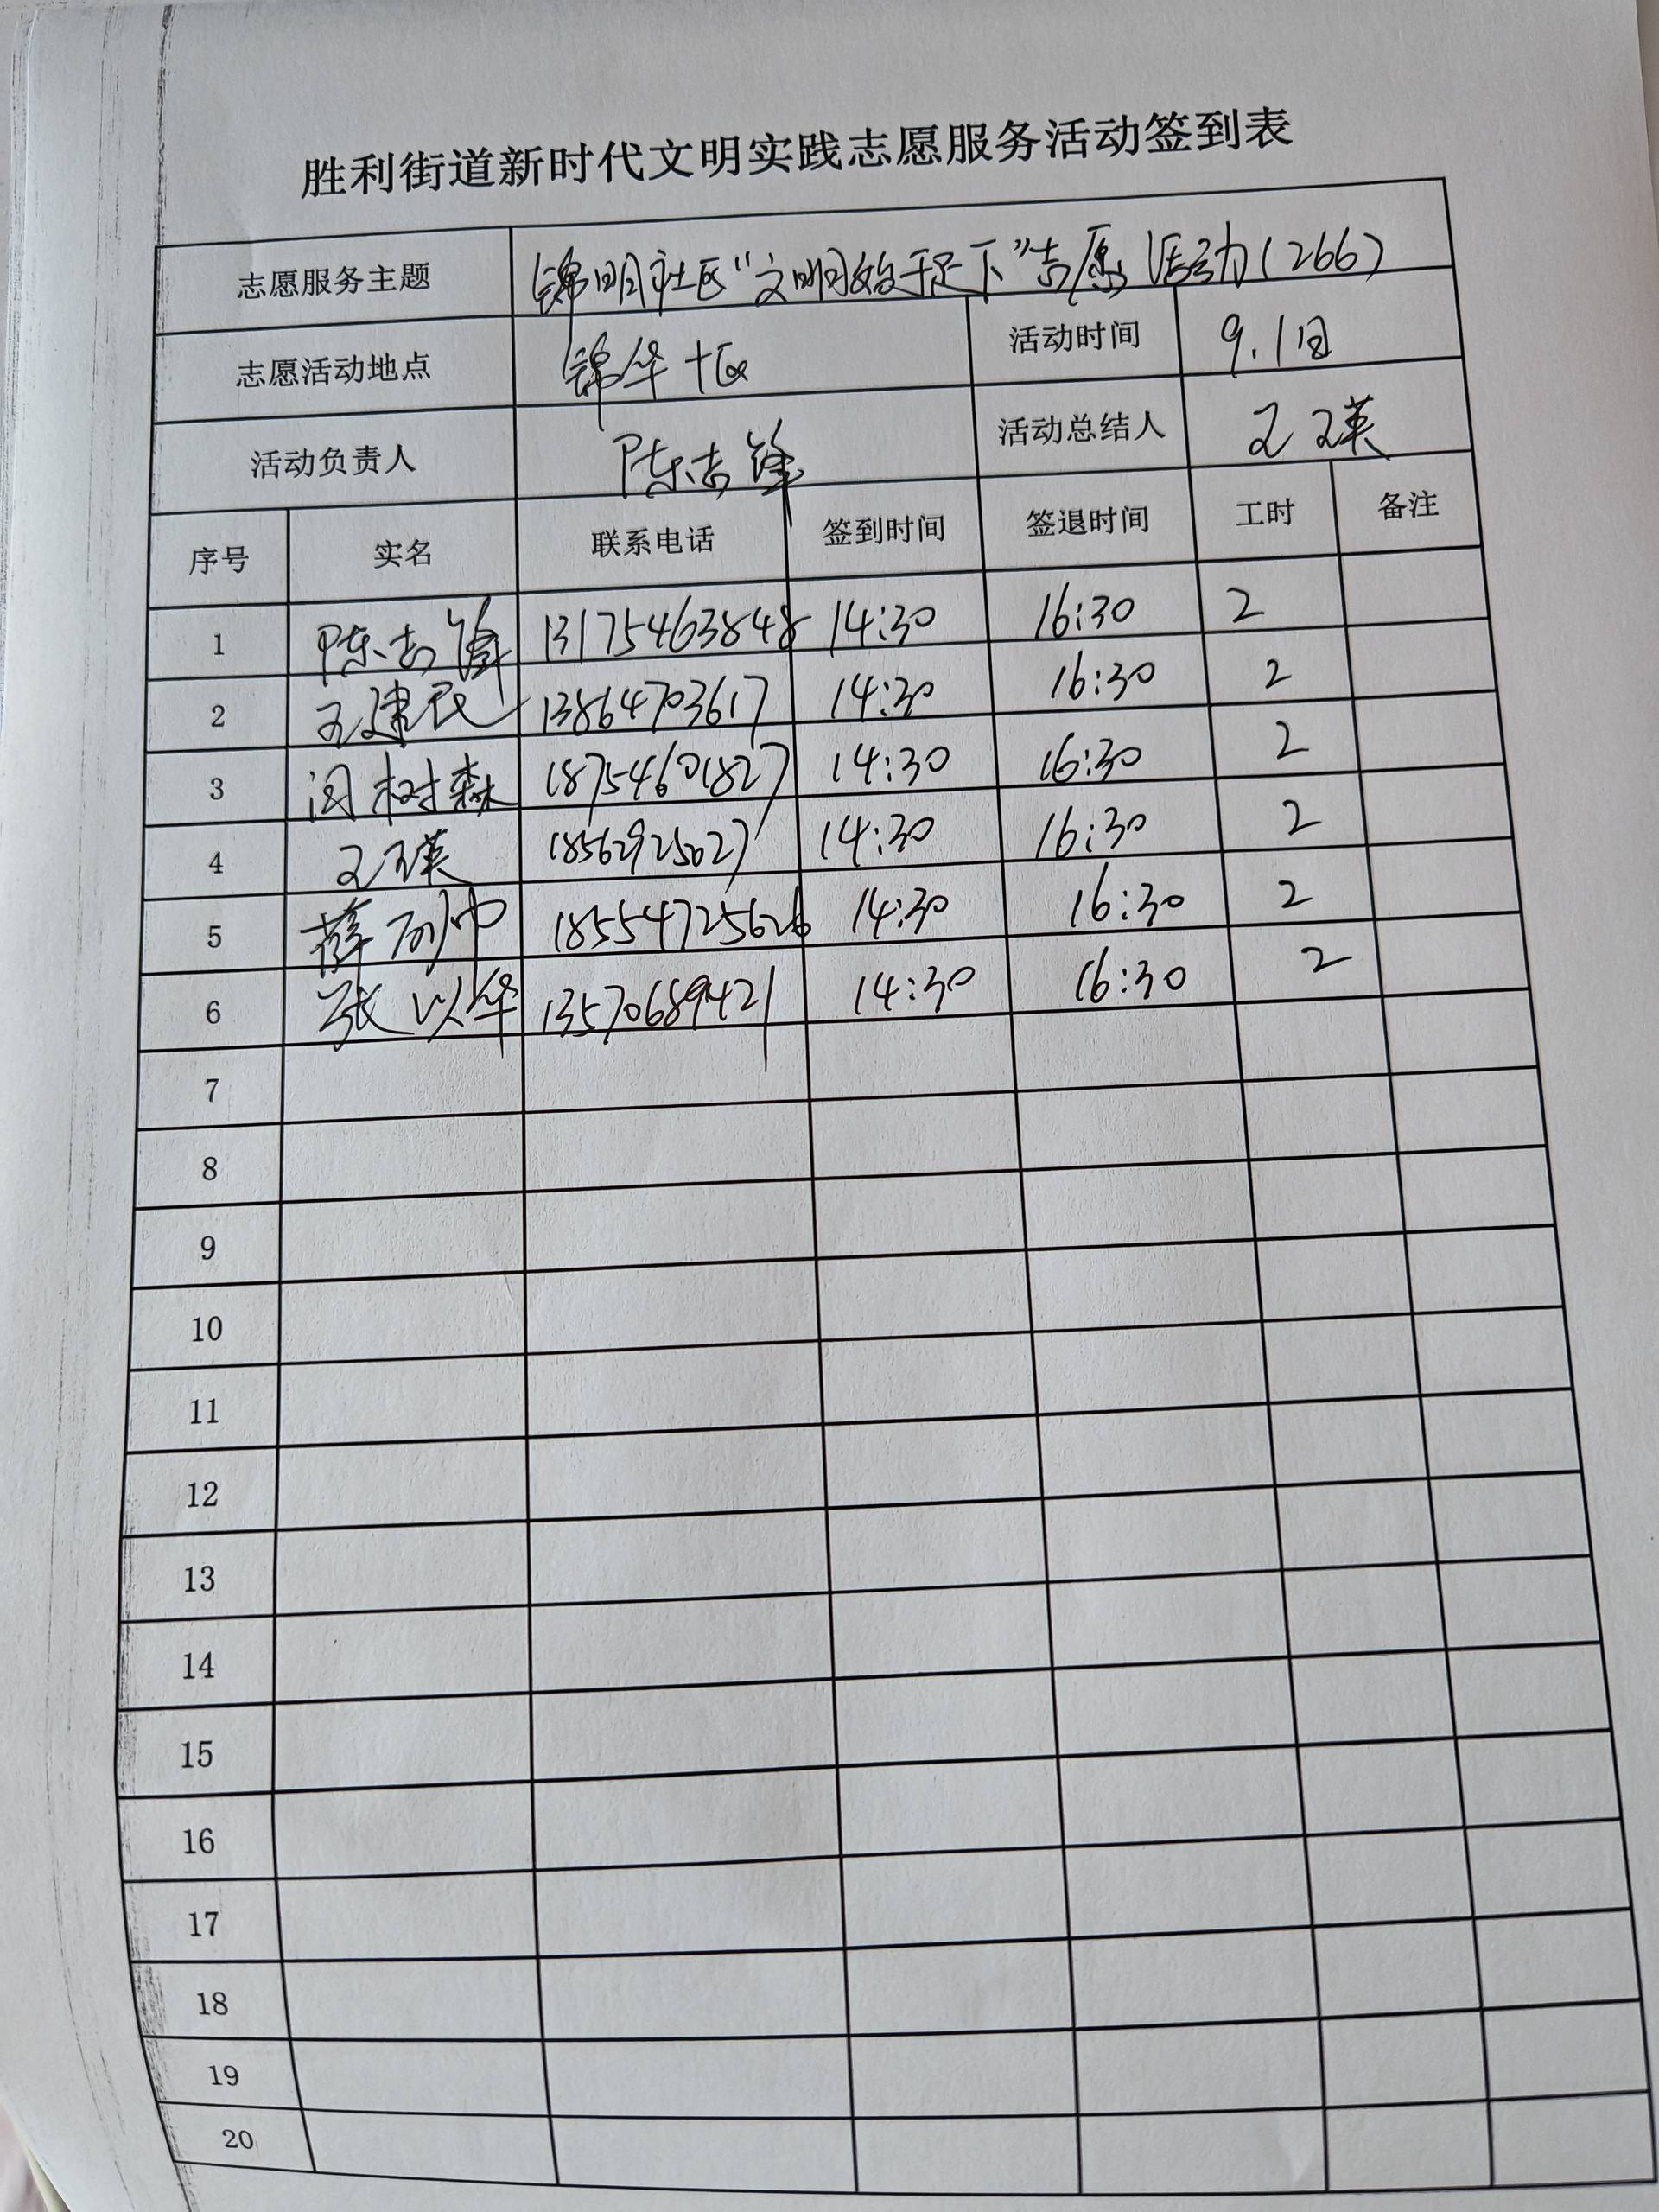 胜利街道新时代文明实践志愿服务活动签到表
志愿服务主题 锦明社区“文明始于足下”志愿活动(266)
志愿活动地点 锦华十区 活动时间 9.1日
活动负责人 陈志锋 活动总结人 王玉英
序号 实名 联系电话 签到时间 签退时间 工时 备注
1 陈志锋 13175463848 14:30 16:30 2
2 王建民 13864703617 14:30 16:30 2
3 闵树森 18754601827 14:30 16:30 2
4 王玉英 14:30 16:30 2
5 薛 18554725626 14:30 16:30 2
6 张以华 13570689421 14:30 16:30 2
7
8
9
10
11
12
13
14
15
16
17
18
19
20